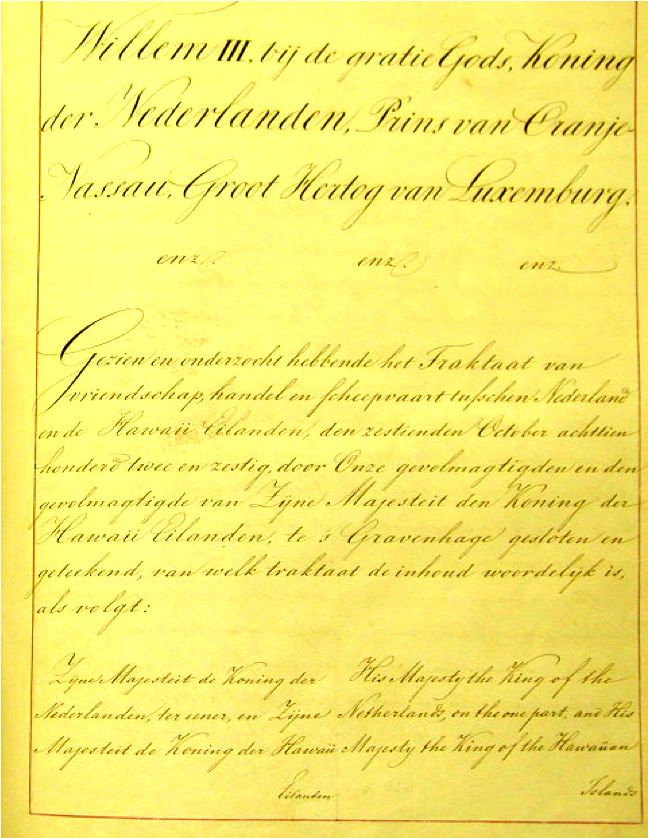 Willem III, bij de gratie Gods, Koning
der Nederlanden, Prins van Oranje-
Nassau, Groot Hertog van Luxemburg,
enz. enz. enz.
Gezien en onderzocht hebbende het Traktaat van
vriendschap, handel en scheepvaart tusschen Nederland
en de Hawaii Eilanden, den zestienden October achttien
honderd twee en zestig, door Onze gevolmagtigden en den
gevolmagtigde van Zijne Majesteit den Koning der
Hawaii Eilanden, te 's Gravenhage gesloten en
geteekend, van welk traktaat de inhoud woordelijk is,
als volgt:
Zijne Majesteit de Koning der
Nederlanden, ter eener, en Zijne
Majesteit de Koning der Hawaii
Eilanden
His Majesty the King of the
Netherlands, on the one part, and His
Majesty the King of the Hawaiian
Islands